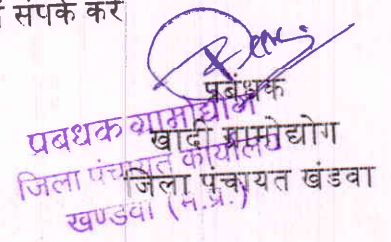 संपर्क करें
प्रबंधक
खादी ग्रामोद्योग
जिला पंचायत खंडवा
प्रबंधक ग्रामोद्योग
जिला पंचायत कार्यालय
खण्डवा (म.प्र.)